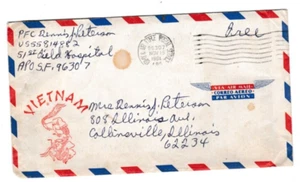 PFC Dennis J. Peterson
US55814862
51st Field Hospital
APO S.F. 96307
Free
VIETNAM
VIA AIR MAIL
CORREO AEREO
PAR AVION
Mrs. Dennis J. Peterson
808 Illinois Ave.
Collinsville, Illinois
62234